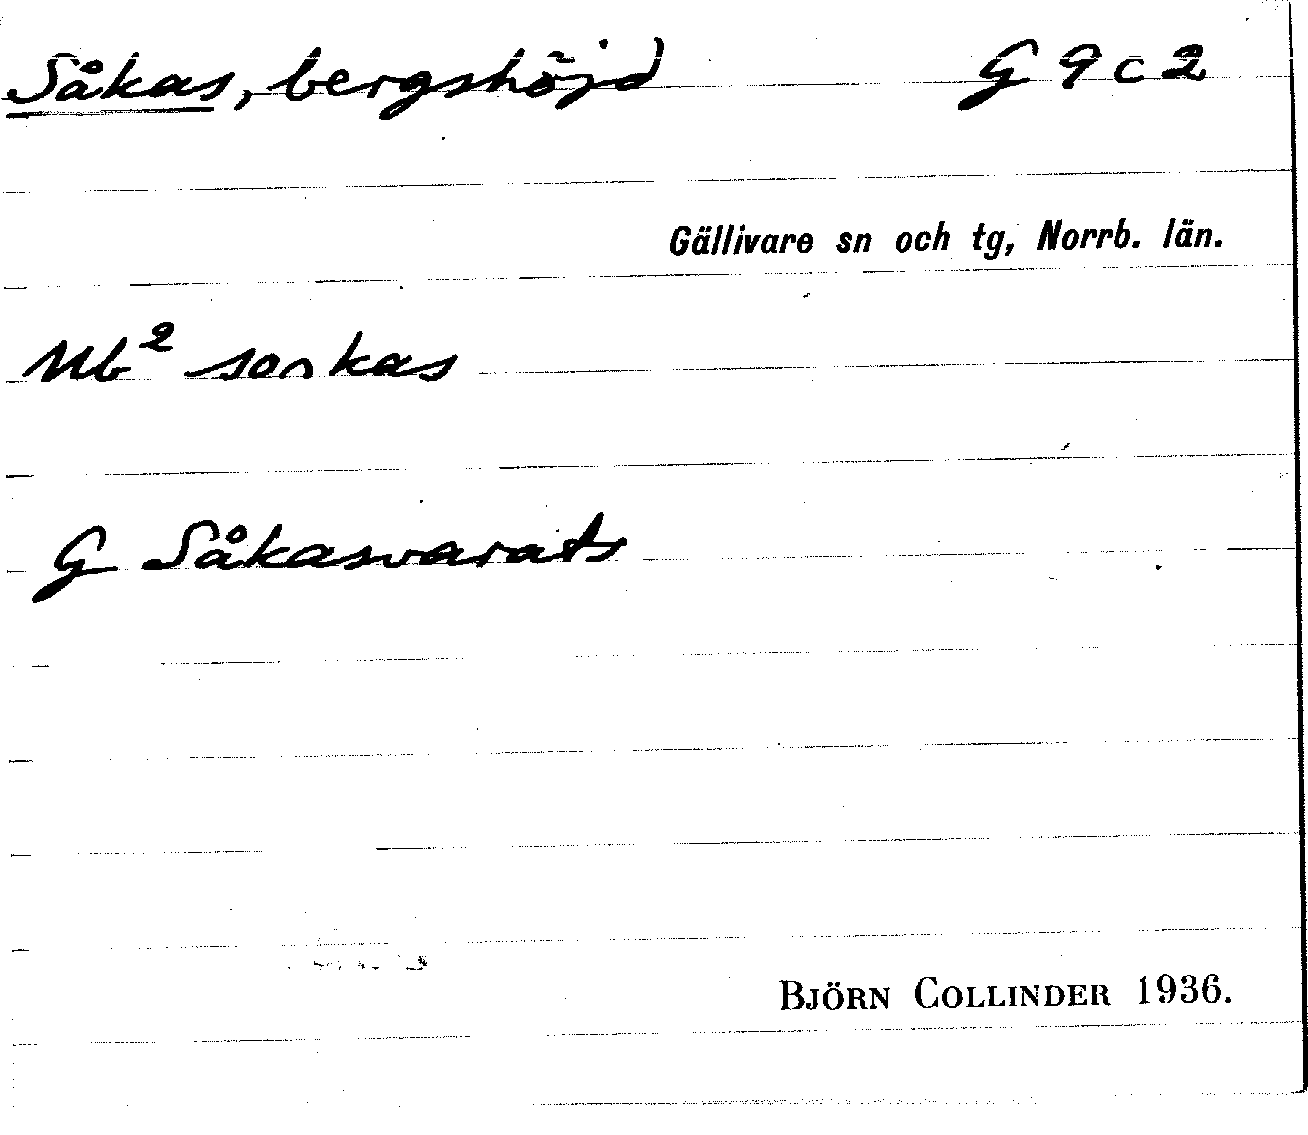 Såkas, bergshöjd G 9 c 2
Gällivare sn och tg, Norrb. län.
Nb² sookas
G Såkasvarats
BJÖRN COLLINDER 1936.